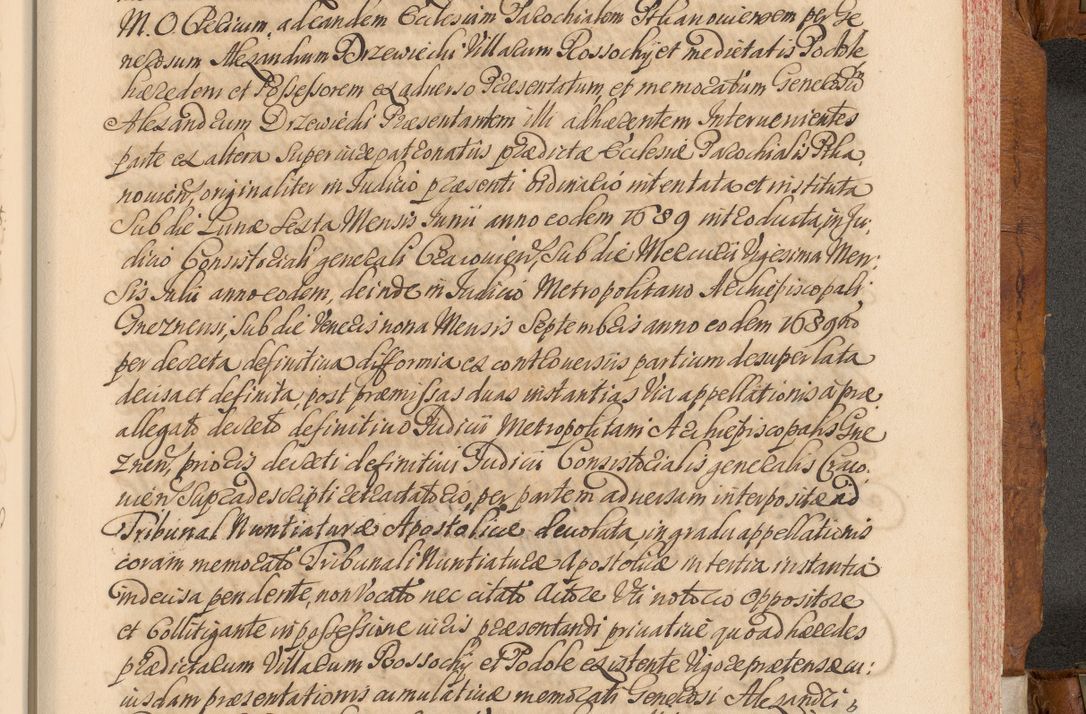 M. O. Pelium, ad eandem Ecclesiam Parochialem Pthanouiensem per Ge
nerosum Alexandrum Drzewiecki Villarum Rossochÿ et medietatis Podole
hæredem et Possessorem ex aduerso Præsentatum et memoratum Generosum
Alexandrum Drzewiecki Præsentantem illi adhærentem Interuenientes
parte ex altera super iure patronatûs prædictæ Ecclesiæ Parochialis Ptha,
nouien, originaliter in Iudicio præsenti Ordinario intentata et instituta
Sub die Lunæ Sexta Mensis Iunii anno eodem 1689 introducta, in Ju,
dicio Consistoriali generali Cracouien, Sub die Mercurii Vigesima Men,
sis Iulii anno eodem, deinde in Iudicio Metropolitano Archiepiscopali
Gneznensi, Sub die Veneris nona Mensis Septembris anno eodem 1689no
per decreta definitiua difformia ex controuersiis partium desuper lata
decisa et definita, post præmissas duas instantias Via appellationis à præ,
allegato decreto definitiuo Iudicii Metropolitani Archiepiscopalis Gne
znen, prioris decreti definitiui Iudicii Consistorialis generalis Craco,
uien Supradescripti retractatorio, per partem aduersam interpositæ ad
Tribunal Nuntiaturæ Apostolicæ deuoluta, in gradu appellationis
coram memorato Tribunali Nuntiaturæ Apostolicæ in tertia instantia
indecisa pendente, non Vocato nec citato Actore Vti notorio Oppositore
et Collitigante in possessione iuris præsentandi priuatiuè quoad hæredes
prædictarum Villarum Rossochÿ et Podole existente Vigore prætensæ cu:
iusdam præsentationis cumulatiuæ memorati Generosi Alexandri